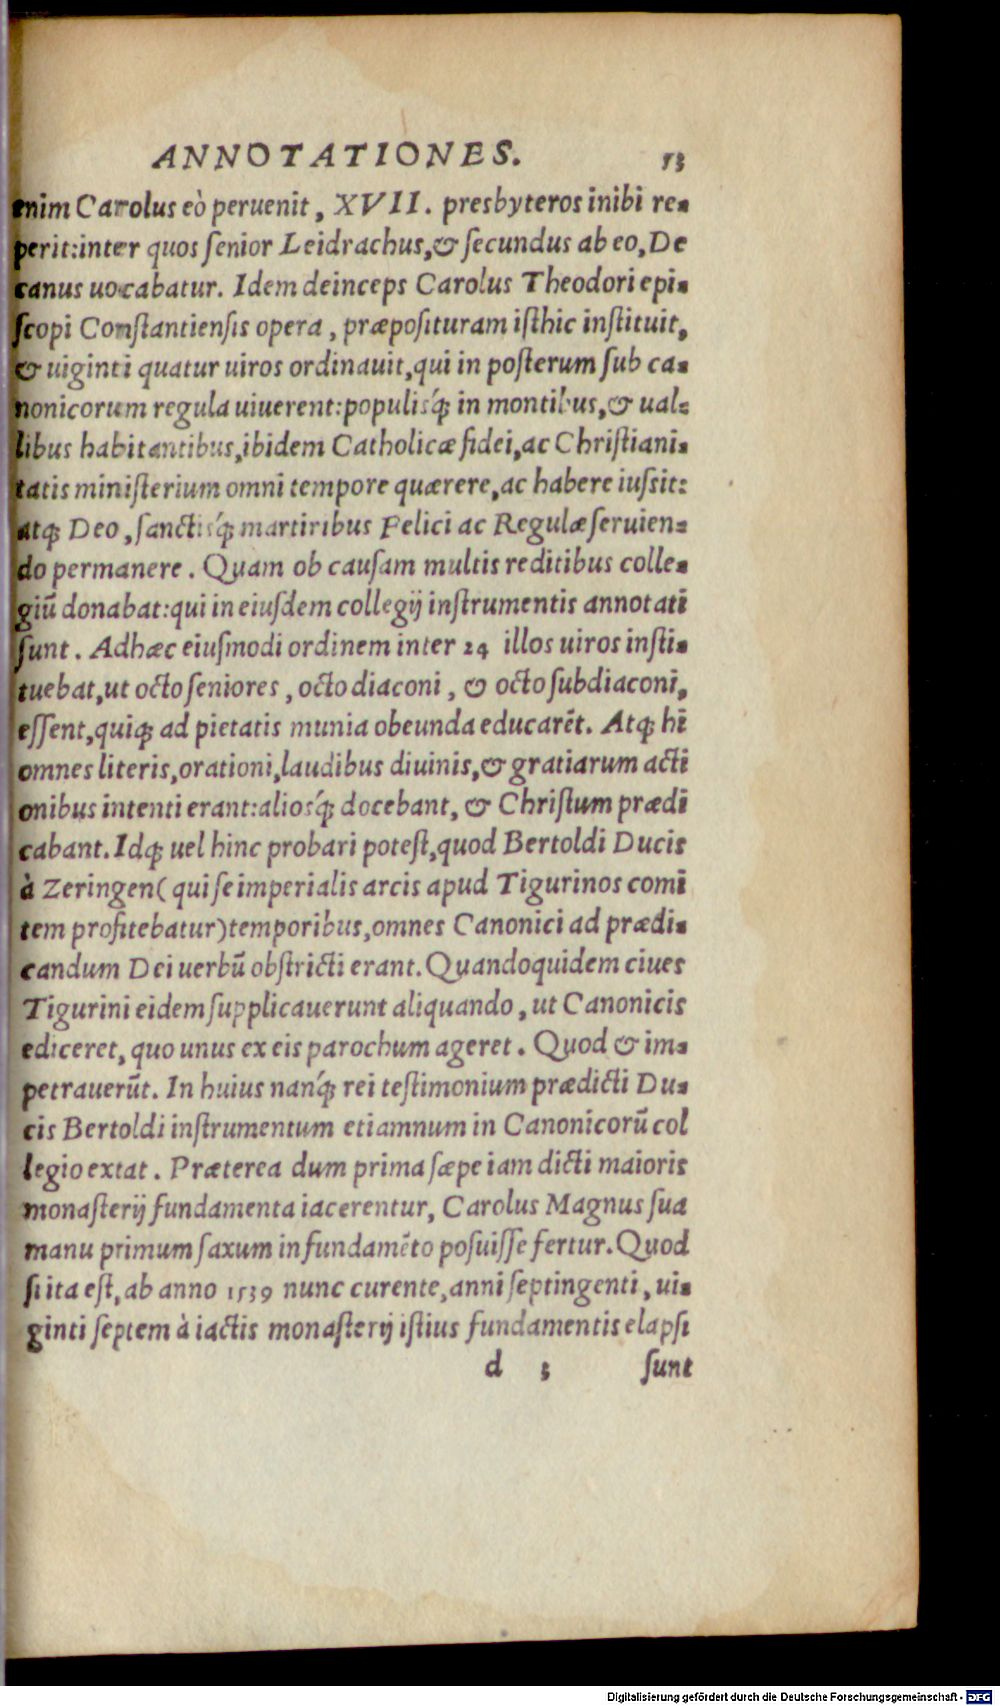 ANNOTATIONES. 53
enim Carolus eò peruenit, XVII. presbyteros inibi re-
perit: inter quos ſenior Leidrachus, & ſecundus ab eo, De
canus uocabatur. Idem deinceps Carolus Theodori epi-
ſcopi Conſtantienſis opera, præpoſituram iſthic inſtituit,
& uiginti quatur uiros ordinauit, qui in poſterum ſub ca-
nonicorum regula uiuerent: populisq́; in montibus, & ual-
libus habitantibus, ibidem Catholicæ fidei, ac Chriſtiani-
tatis miniſterium omni tempore quærere, ac habere iuſsit:
atq; Deo, ſanctisq́; martiribus Felici ac Regulæ ſeruien-
do permanere. Quam ob cauſam multis reditibus colle-
giū donabat: qui in eiuſdem collegij inſtrumentis annotati
ſunt. Adhæc eiuſmodi ordinem inter 24 illos uiros inſti-
tuebat, ut octo ſeniores, octo diaconi, & octo ſubdiaconi,
eſſent, quiq; ad pietatis munia obeunda educarēt. Atq; hi
omnes literis, orationi, laudibus diuinis, & gratiarum acti
onibus intenti erant: aliosq́; docebant, & Chriſtum prædi
cabant. Idq; uel hinc probari poteſt, quod Bertoldi Ducis
à Zeringen (qui ſe imperialis arcis apud Tigurinos comi
tem profitebatur) temporibus, omnes Canonici ad prædi-
candum Dei uerbū obſtricti erant. Quandoquidem ciues
Tigurini eidem ſupplicauerunt aliquando, ut Canonicis
ediceret, quo unus ex eis parochum ageret. Quod & im-
petrauerūt. In huius nanq́; rei teſtimonium prædicti Du-
cis Bertoldi inſtrumentum etiamnum in Canonicorū col
legio extat. Præterea dum prima ſæpe iam dicti maioris
monaſterij fundamenta iacerentur, Carolus Magnus ſua
manu primum ſaxum in fundamēto poſuiſſe fertur. Quod
ſi ita eſt, ab anno 1539 nunc curente, anni ſeptingenti, ui-
ginti ſeptem à iactis monaſterij iſtius fundamentis elapſi
d 3 ſunt
Digitalisierung gefördert durch die Deutsche Forschungsgemeinschaft - DFG